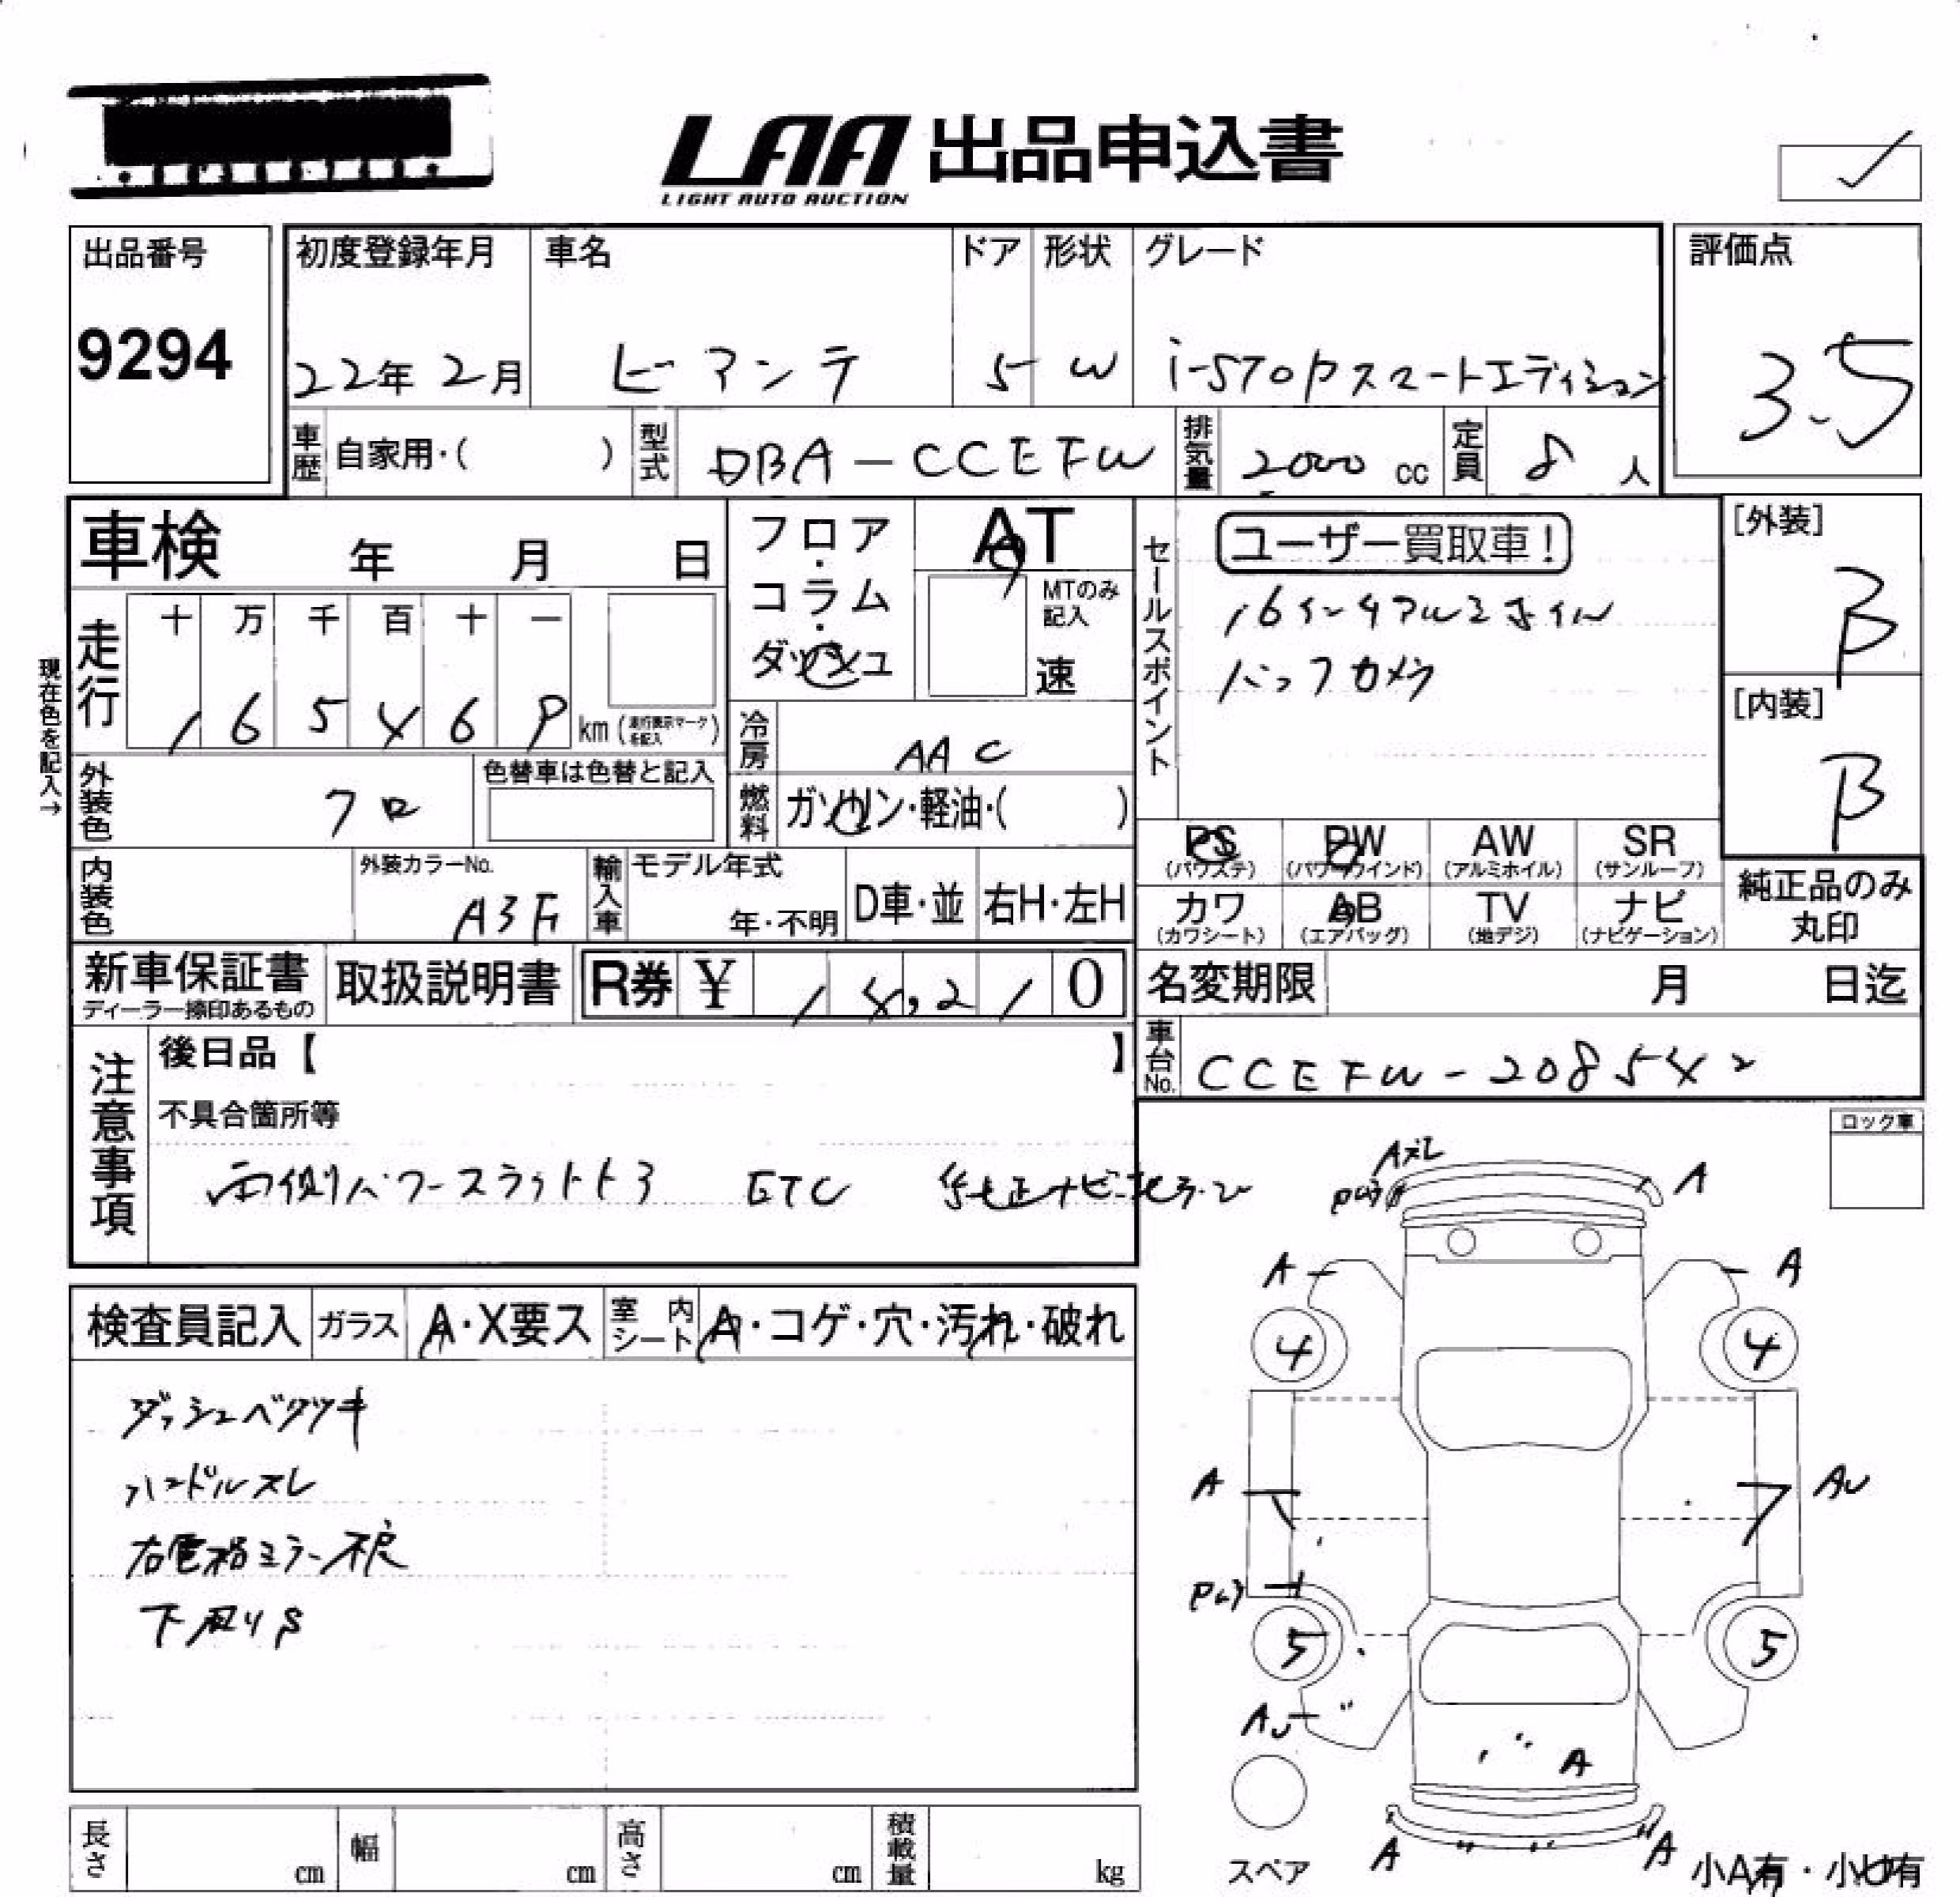 LAA 出品申込書
LIGHT AUTO AUCTION
出品番号
9294
初度登録年月
22年2月
車名
ビアンテ
ドア
5
形状
W
グレード
i-STOPスマートエディション
評価点
3.5
車歴 自家用・( )
型式 DBA-CCEFW
排気量 2000 cc
定員 8 人
車検 年 月 日
フロア・コラム・ダッシュ
AT
MTのみ記入
速
セールスポイント
ユーザー買取車!
16インチアルミホイル
バックカメラ
[外装]
B
[内装]
B
現在色を記入→
走行
十 万 千 百 十 一
1 6 5 4 6 9 km (走行表示マークを記入)
冷房 AAC
外装色 クロ
色替車は色替と記入
燃料 ガソリン・軽油・( )
PS (パワステ)
PW (パワーウインド)
AW (アルミホイル)
SR (サンルーフ)
カワ (カワシート)
AB (エアバッグ)
TV (地デジ)
ナビ (ナビゲーション)
純正品のみ丸印
内装色
外装カラーNo. A3F
輸入車
モデル年式 年・不明
D車・並
右H・左H
新車保証書
ディーラー捺印あるもの
取扱説明書
R券 ¥ 14,210
名変期限 月 日迄
車台No. CCEFW-208542
注意事項
後日品【 】
不具合箇所等
両側パワースライドドア ETC 純正ナビ地デジ
ロック車
検査員記入
ガラス A・X要ス
室内シート A・コゲ・穴・汚れ・破れ
ダッシュベタツキ
ハンドルスレ
右電格ミラー不良
下廻りS
Aズレ
A
A
A
4
4
A
AU
5
5
AU
A
A
A
スペア
小A有・小U有
長さ cm
幅 cm
高さ cm
積載量 kg